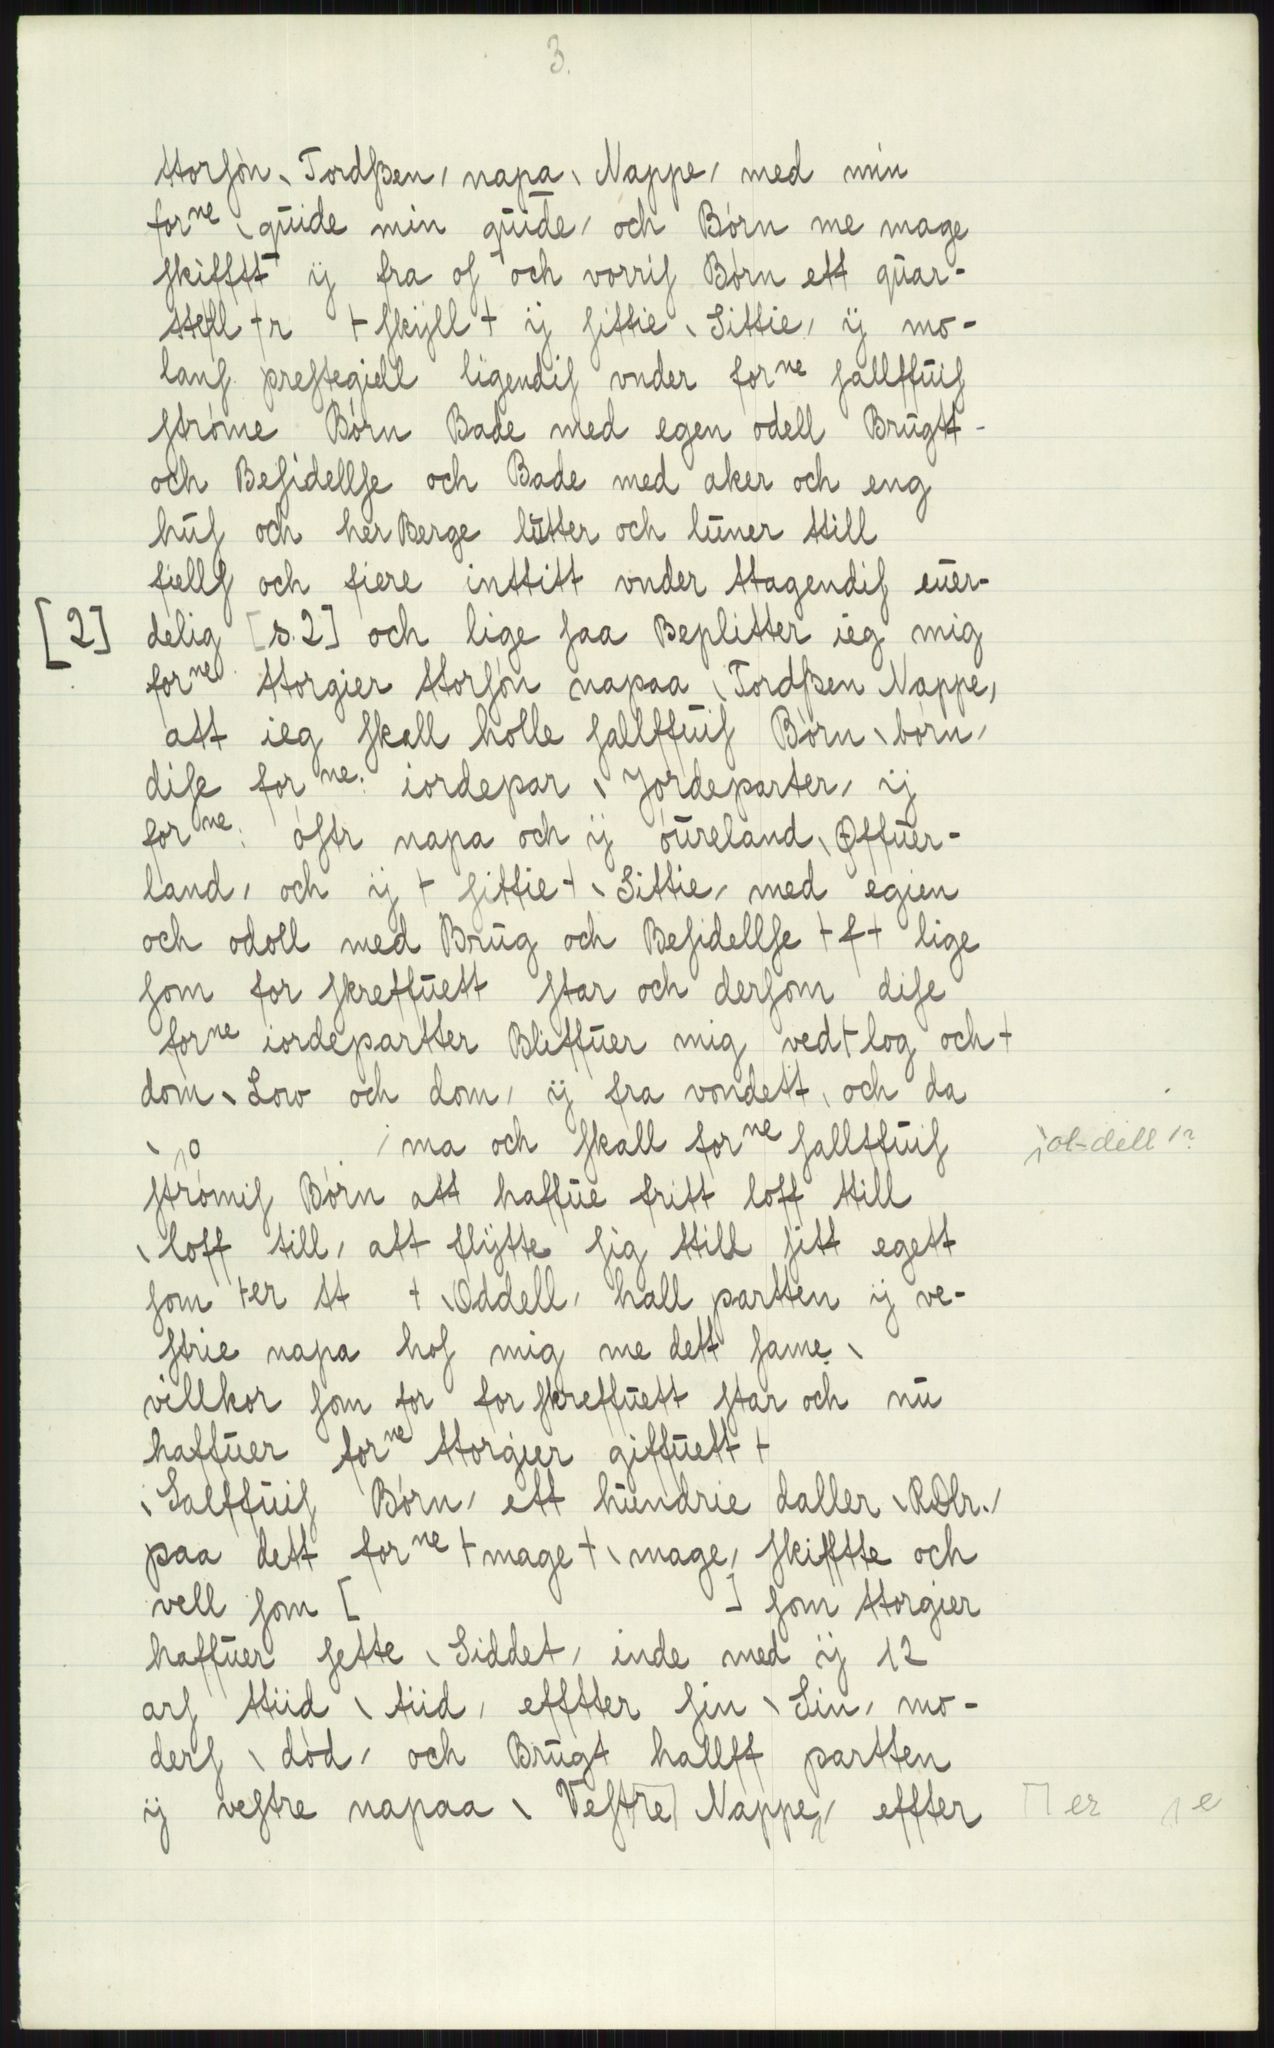 3.
ttorſón \ Tordſsen / napa \ Nappe / med min
forne \ quide min quide / och Børn me mage
ſkifftt ij fra oſ och vorriſ Børn ett quar-
ttell +r + ſkÿll + ij ſittie \ Sittie / ij mo-
lanſ preſtegiell ligendiſ vnder forne ſallffuiſ
ſtróme Børn Bade med egen odell Brugtt -
och Beſidellſe och Bade med aker och eng
huſ och her Berge lutter och luner ttill
fiellſ och fiere inttitt vnder ttagendiſ euer-
[2] delig [s.2] och lige ſaa Beplitter ieg mig
forne ttorgier ttorſón napaa \ Tordſsen Nappe,
att ieg ſkall holle ſallffuiſ Børn \ børn /
diſe forne: iordepar \ Jordeparter / ij
forne: óſtr napa och ij óureland \ Øffuer-
land / och ij + ſittie + \ Sittie / med egien
och odoll med Brug och Beſidellſe + f + lige
ſom for ſkreffuett ſtar och derſom diſe
forne iordepartter Bliffuer mig ved + log och +
dom \ Low och dom / ij fra vondett, och da
\ / ma och ſkall forne ſallffuiſ
\ ot-dell / ?
ſtrómiſ Børn att haffue fritt loff ttill
\ loff till / att flÿtte ſig ttill ſitt egett
ſom + er tt + \ Oddell / hall partten ij ve-
ſtrie napa hoſ mig me dett ſame \
villkor ſom for for ſkreffuett ſtar och nu
haffuer forne ttorgier giffuett +
\ Salffuiſ Børn / ett hundrie daller \ RDlr. /
paa dett forne + mage + \ mage / ſkifftte och
vell ſom [ ] ſom ttorgier
haffuer ſette \ Siddet / inde med ij 12
arſ ttiid \ tiid / efftter ſin \ Sin / mo-
derſ \ død / och Brugt hallff partten
ij veſtre napaa \ Veſtre Nappe / effter
er e